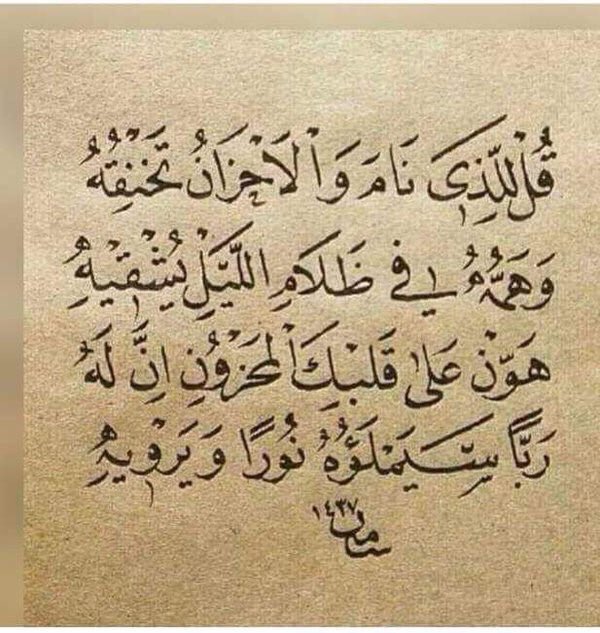 قُلْ لِلَّذِى نَامَ وَالْاَحْزَانُ تَخْنِقُهُ
وَهَمُّهُ فِي ظَلَامِ اللَّيْلِ يُشْقِيْهِ
هَوِّنْ عَلَى قَلْبِكَ الْمَحْزُوْنِ اِنَّ لَهُ
رَبًّا سَيَمْلَؤُهُ نُورًا وَيَرْوِيْهِ
سامان ١٤٣٧